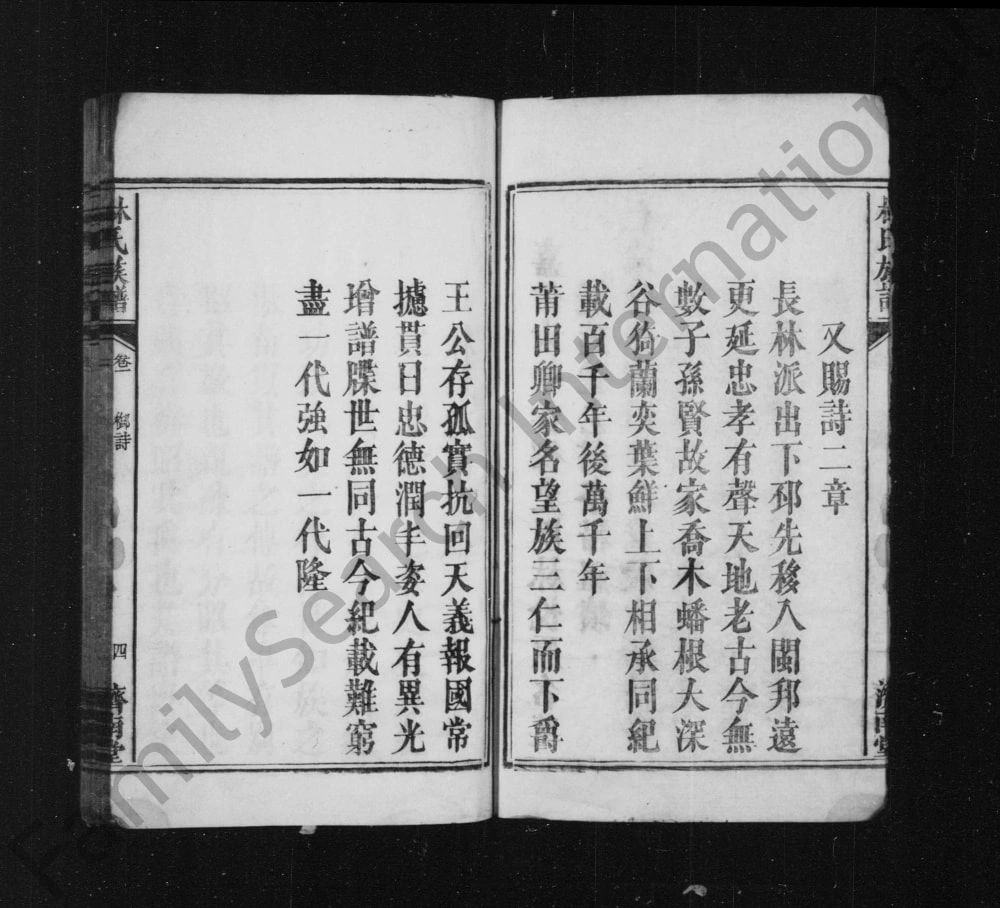 又賜詩二章
長林派出下邳先移入閩邦遠
更延忠孝有聲天地老古今無
數子孫賢故家喬木蟠根大深
谷猗蘭奕葉鮮上下相承同紀
載百千年後萬千年
莆田卿家名望族三仁而下爵
王公存孤實抗回天義報國常
攄貫日忠德潤丰姿人有異光
增譜牒世無同古今紀載難窮
盡一代強如一代隆
林氏族譜
卷一
御詩
四
濟南堂
林氏族譜
濟南堂
FamilySearch International